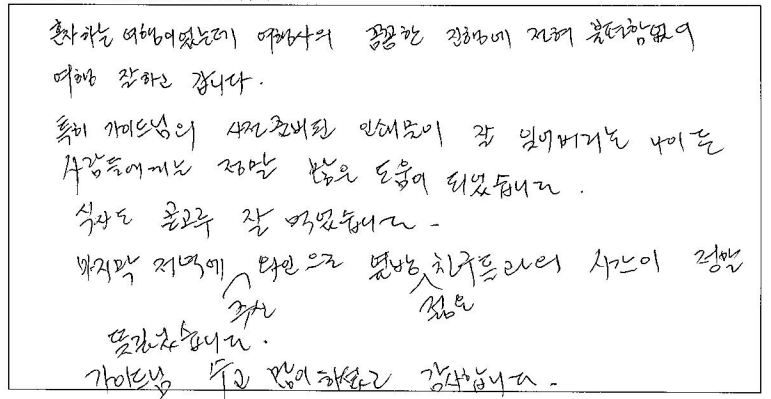 혼자하는 여행이었는데 여행사의 꼼꼼한 진행에 전혀 불편함없이
여행 잘하고 갑니다.
특히 가이드님의 사전준비된 인쇄물이 잘 잊어버리는 나이 든
사람들에게는 정말 많은 도움이 되었습니다.
식사도 골고루 잘 먹었습니다.
마지막 저녁에 주신 와인으로 옆방 젊은 친구들과의 시간이 정말
뜻깊었습니다.
가이드님 수고 많이하셨고 감사합니다.